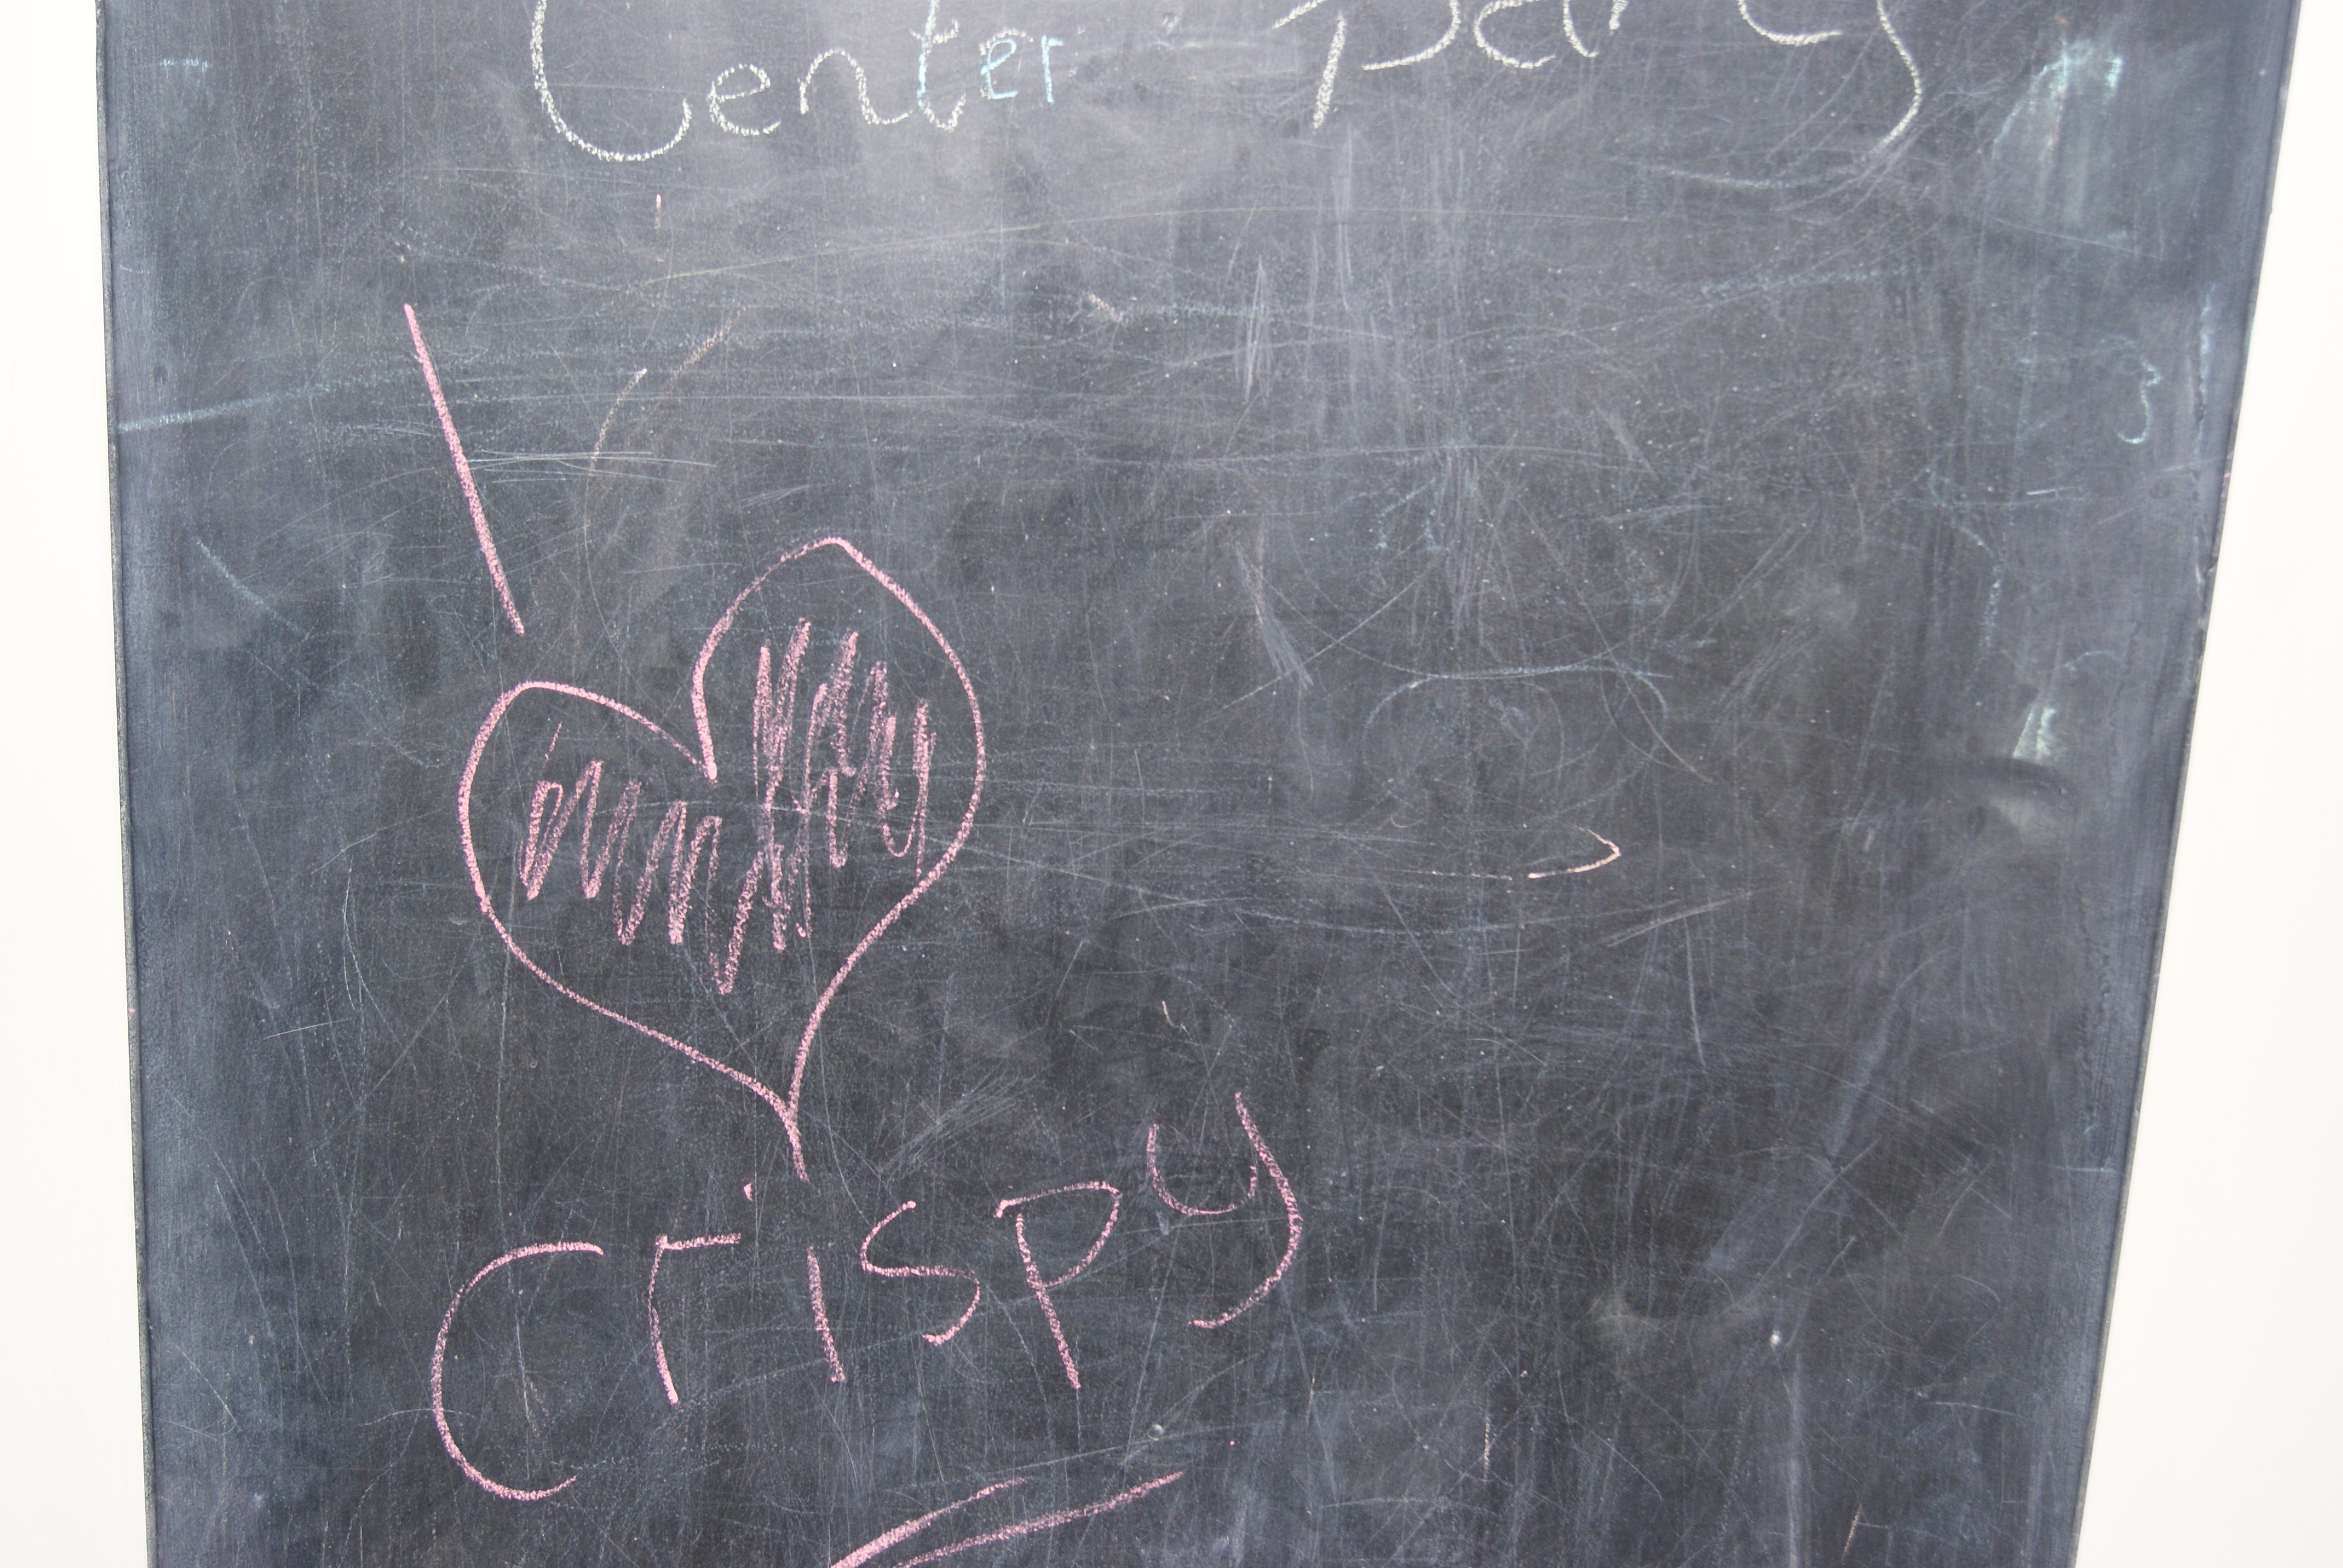 Center Party
I
crispy